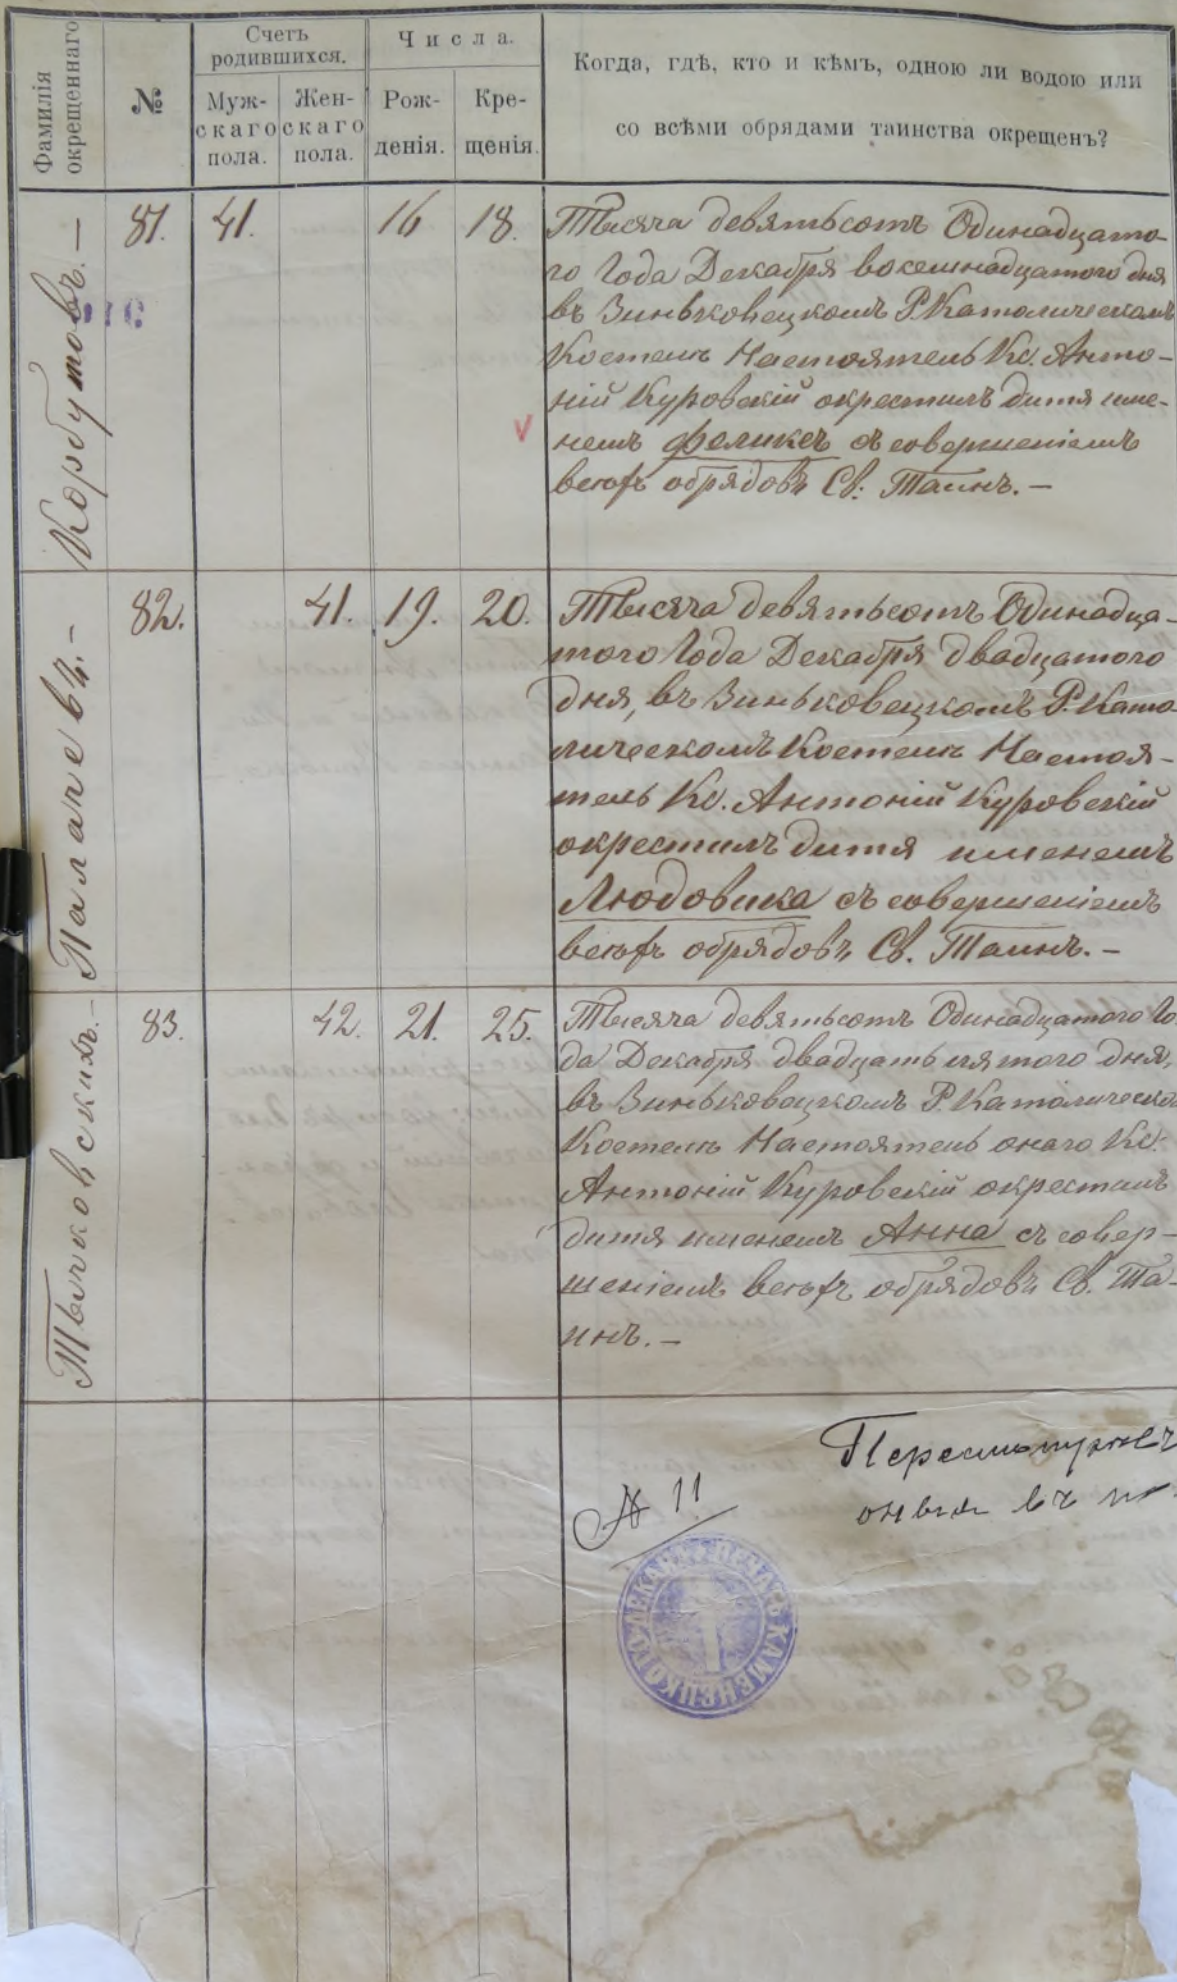 Фамилія
окрещеннаго
№
Счетъ
родившихся.
Муж-
скаго
пола.
Жен-
скаго
пола.
Числа.
Рож-
денія.
Кре-
щенія.
Когда, гдѣ, кто и кѣмъ, одною ли водою или
со всѣми обрядами таинства окрещенъ?
Корбутовъ. —
81.
41.
16
18.
Тысяча девятьсотъ Одинадцато-
го Года Декабря восемнадцатого дня
въ Зиньковецкомъ Р. Католическомъ
Костелѣ Настоятель Кс. Анто-
ній Куровскій окрестилъ дитя име-
v
немъ Феликсъ съ совершеніемъ
всѣхъ обрядовъ Св: Таинъ. —
Палачевъ. —
82.
41.
19.
20.
Тысяча девятьсотъ Одинадца-
того Года Декабря двадцатого
дня, въ Зиньковецкомъ Р. Като-
лическомъ Костелѣ Настоя-
тель Кс. Антоній Куровскій
окрестилъ дитя именемъ
Людовика съ совершеніемъ
всѣхъ обрядовъ Св. Таинъ. —
Тычковскихъ. —
83.
42.
21.
25.
Тысяча девятьсотъ Одинадцатого Го-
да Декабря двадцать пятого дня,
въ Зиньковецкомъ Р. Католическо
Костелѣ Настоятель онаго Кс.
Антоній Куровскій окрестилъ
дитя именемъ Анна съ совер-
шеніемъ всѣхъ обрядовъ Св. Та-
инъ. —
въ
№ 11
ПЕЧАТЬ КАМЕНЕЦКОГО ДЕКАНА